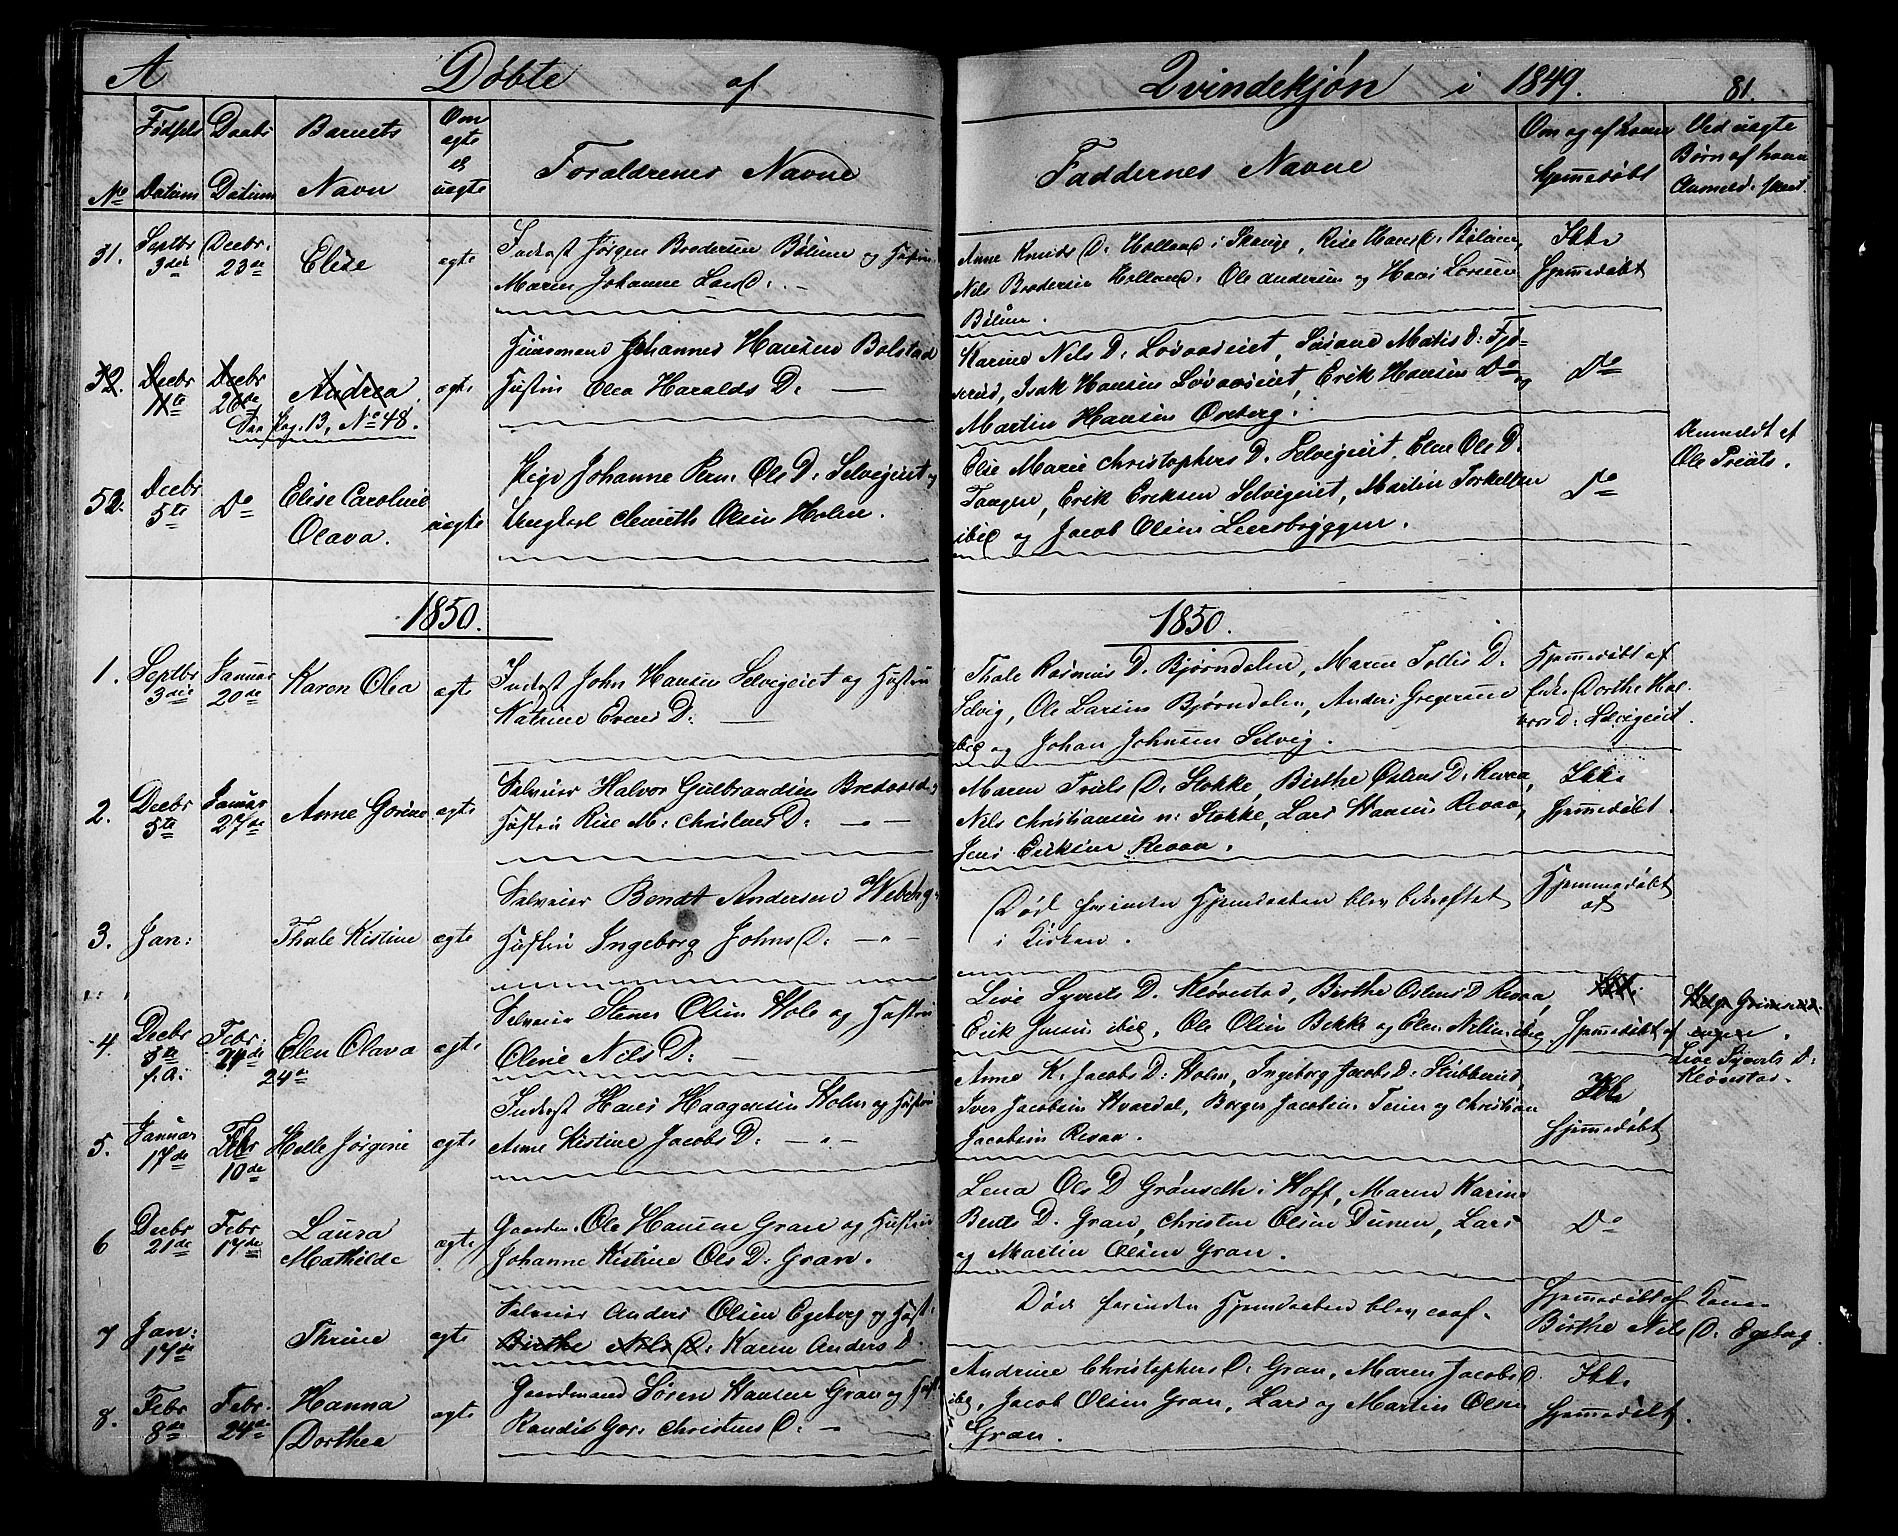 A Døbte af Qvindekjøn i 1849. 81.
No Fødsels Datum Daabs Datum Barnets Navn Om ægte el uægte Forældrenes Navne Faddernes Navne Om og af hvem hjemmedøbt Ved uægte Børn af hvem Anmeld:
31. Septbr 3die Decbr. 23de Elise ægte Inderst Jørgen Brodersen Bølum og Hustru
Maren Johanne Lars D: —
Anne Knuds D: Holland i Skouge, Hans D: Bølum,
Nils Brodersen Holland, Ole Andersen og Hans Larsen
Bølum.
Ikke
hjemmedøbt
32. Decbr 11te Decbr 26de Andrea ægte Huusmand Johannes Hansen Bolstad
Hustru Olea Haralds D: —
See Pag. 13, No 48.
Karine Nils D: Løvaaseiet, Matis D:
Isak Hansen Løvaaseiet, Erik Hansen Do og
Martin Hansen Oreberg.
Do
52. Decbr 5te Do Elise Caroline
Olava. uægte Pige Johanne Ols D: Selvigeiet og
Ungkarl Olsen Holm.
Elie Marie Christophers D. Selvigeiet, Elen Ols D.
Erik Eriksen Selvigeiet, Martin Torkelsen
ibid og Jacob Olsen Leersbryggen.
Do
Anmeldt af
Ole
1850. 1850.
1. Septbr 3die Januar 20de Karen Olea ægte Inderst John Hansen Selvigeiet og Hustru
D: —
Thale Rasmus D. Bjørndalen, Maren Tollis D.
Selvig, Ole Larsen Bjørndalen, Anders Gregersen
ibid og Johan Johnsen Selvig.
Hjemmedøbt af
Dorthe Hal-
vors D: Selvigeiet.
2. Decbr 5te Januar 27de Anne Gorine ægte Selveier Halvor Gulbrandsen
Hustru M: Christens D: — " —
Maren Truls D. Stokke, Birthe Ostens D: Revaa,
Nils Christiansen n: Stokke, Lars Hansen Revaa,
Jens Eriksen Revaa.
Ikke
hjemmedøbt.
3. Jan: Thale Kistine ægte Selveier Bendt Andersen
Hustru Ingeborg Johns D: — " —
Død forinden Hjemdaaben blev bekræftet
i Kirken.
Hjemmedøbt
af
4. Decbr 8te f.A. Febr: 24de
24de Elen Olava ægte Selveier Olsen Hole og Hustru
Oline Nils D: —
Live Syverts D. Kløvestad, Birthe Ostens D Revaa,
Erik Jensen ibid, Ole Olsen Bekke og Elen ibid
hjemmedøbt af
Live Syverts D:
Kløvestad.
5. Januar 17de Febr 10de Helle Jørgine ægte Inderst Hans Haagensen Holm og Hustru
Anne Kistine Jacobs D: — " —
Anne K. Jacobs D: Holm, Ingeborg Jacobs D: Stubberud,
Iver Jacobsen Kvardal, Borger Jacobsen og Christian
Jacobsen Revaa.
Ikke
hjemmedøbt
6 Decbr 21de Febr 17de Laura
Mathilde ægte Gaardm. Ole Hansen Gran og Hustru
Johanne Kistine Ols D: Gran.
Lena Ols D Grønseth i Hoff, Maren Karine
Bents D. Gran, Christen Olsen Lars
og Martin Olsen Gran.
Do
7 Jan: 17de Thrine ægte Selveier Anders Olsen Egeberg og Hust:
Birthe Nils D: Karen Anders D.
Død forinden Hjemdaaben blev
Hjemmedøbt af Kone
Birthe Nils D: Egeberg
8. Febr 8de Febr. 24de Hanna
Dorthea ægte Gaardmand Søren Hansen Gran og Hust
Christens D: —
Andrine Christophers D. Gran, Maren Jacobs D.
ibid, Jacob Olsen Gran, Lars og Martin Olsen
Gran.
Ikke
hjemmedøbt.